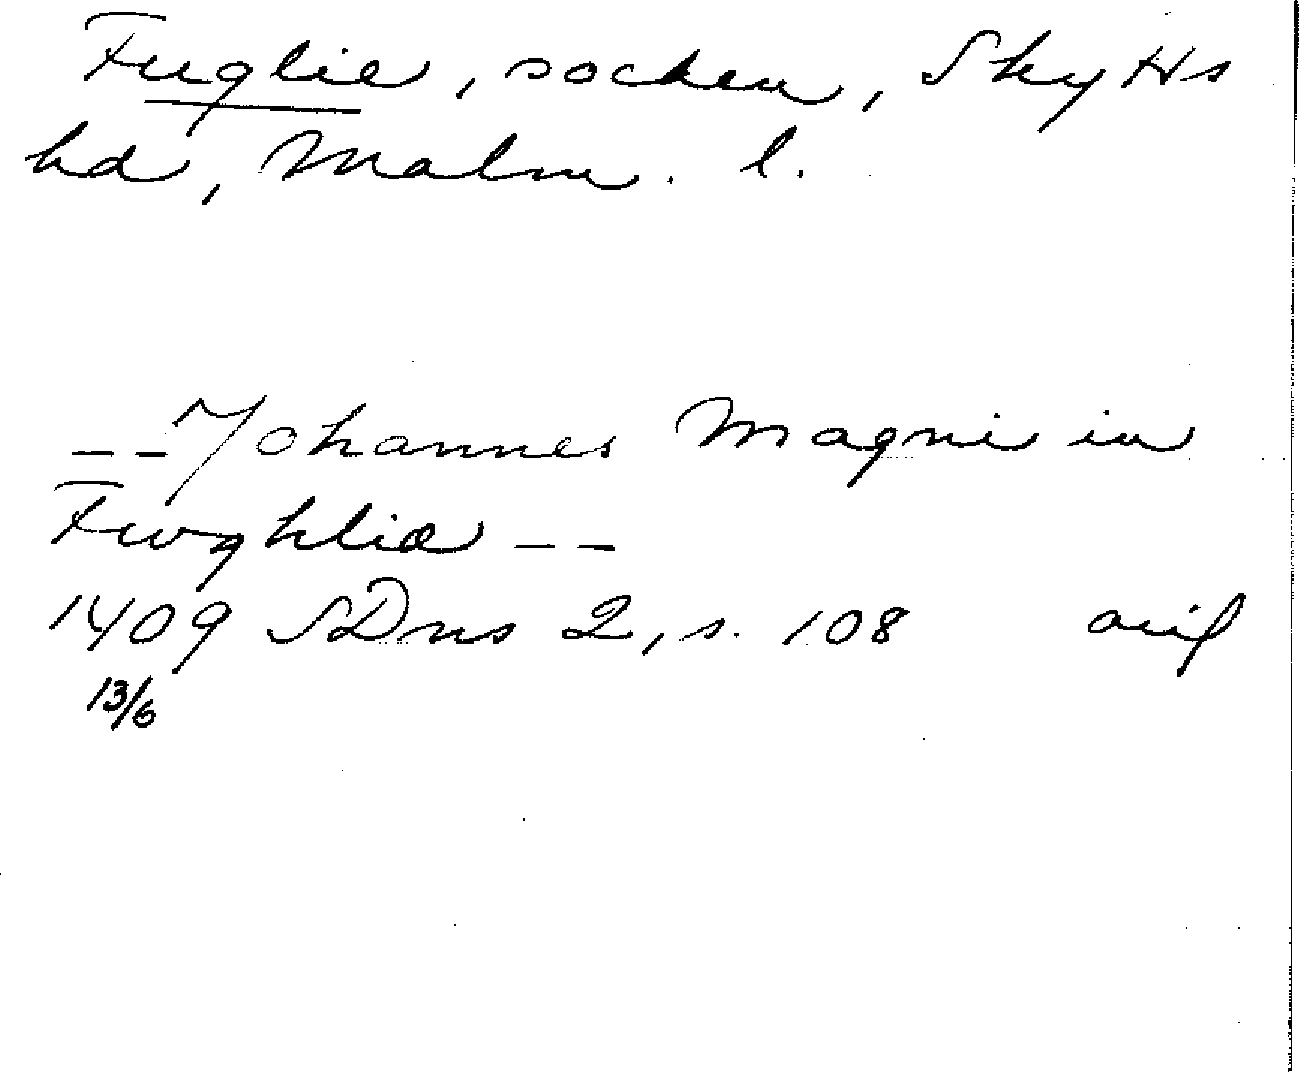 Fuglie, socken, Skytts
hd, Malm. l.
-- Johannes Magni in
Fwghlia --
1409 SDns 2, s. 108 avig
13/6